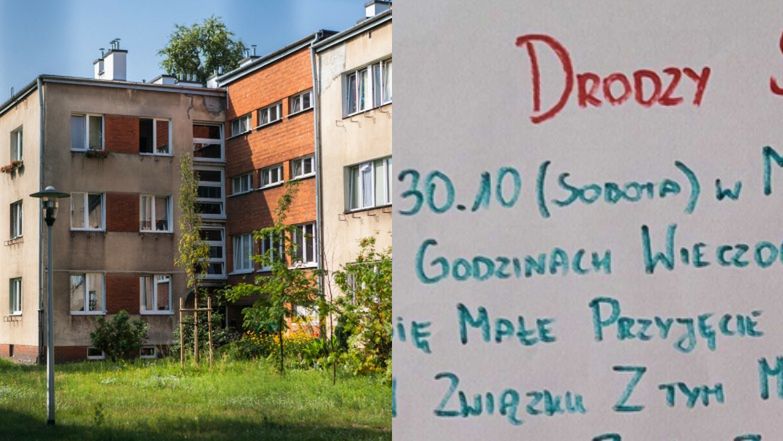 DRODZY
30.10 (SOBOTA) W
GODZINACH WIECZO
IĘ MAŁE PRZYJĘCIE
ZWIĄZKU Z TYM M